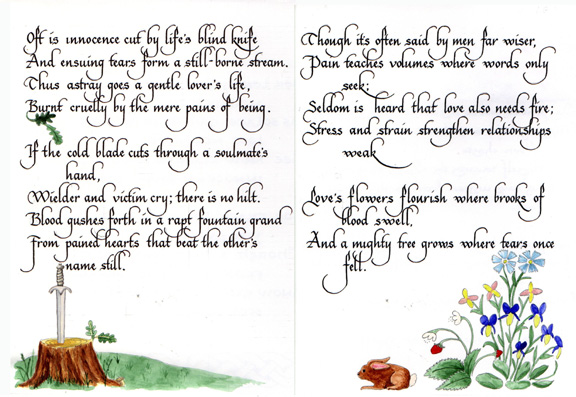 Oft is innocence cut by life's blind knife
And ensuing tears form a still-borne stream.
Thus astray goes a gentle lover's life,
Burnt cruelly by the mere pains of being.
If the cold blade cuts through a soulmate's
hand,
Wielder and victim cry; there is no hilt.
Blood gushes forth in a rapt fountain grand
From pained hearts that beat the other's
name still.
Though it's often said by men far wiser,
Pain teaches volumes where words only
seek;
Seldom is heard that love also needs fire;
Stress and strain strengthen relationships
weak
Love's flowers flourish where brooks of
blood swell,
And a mighty tree grows where tears once
fell.